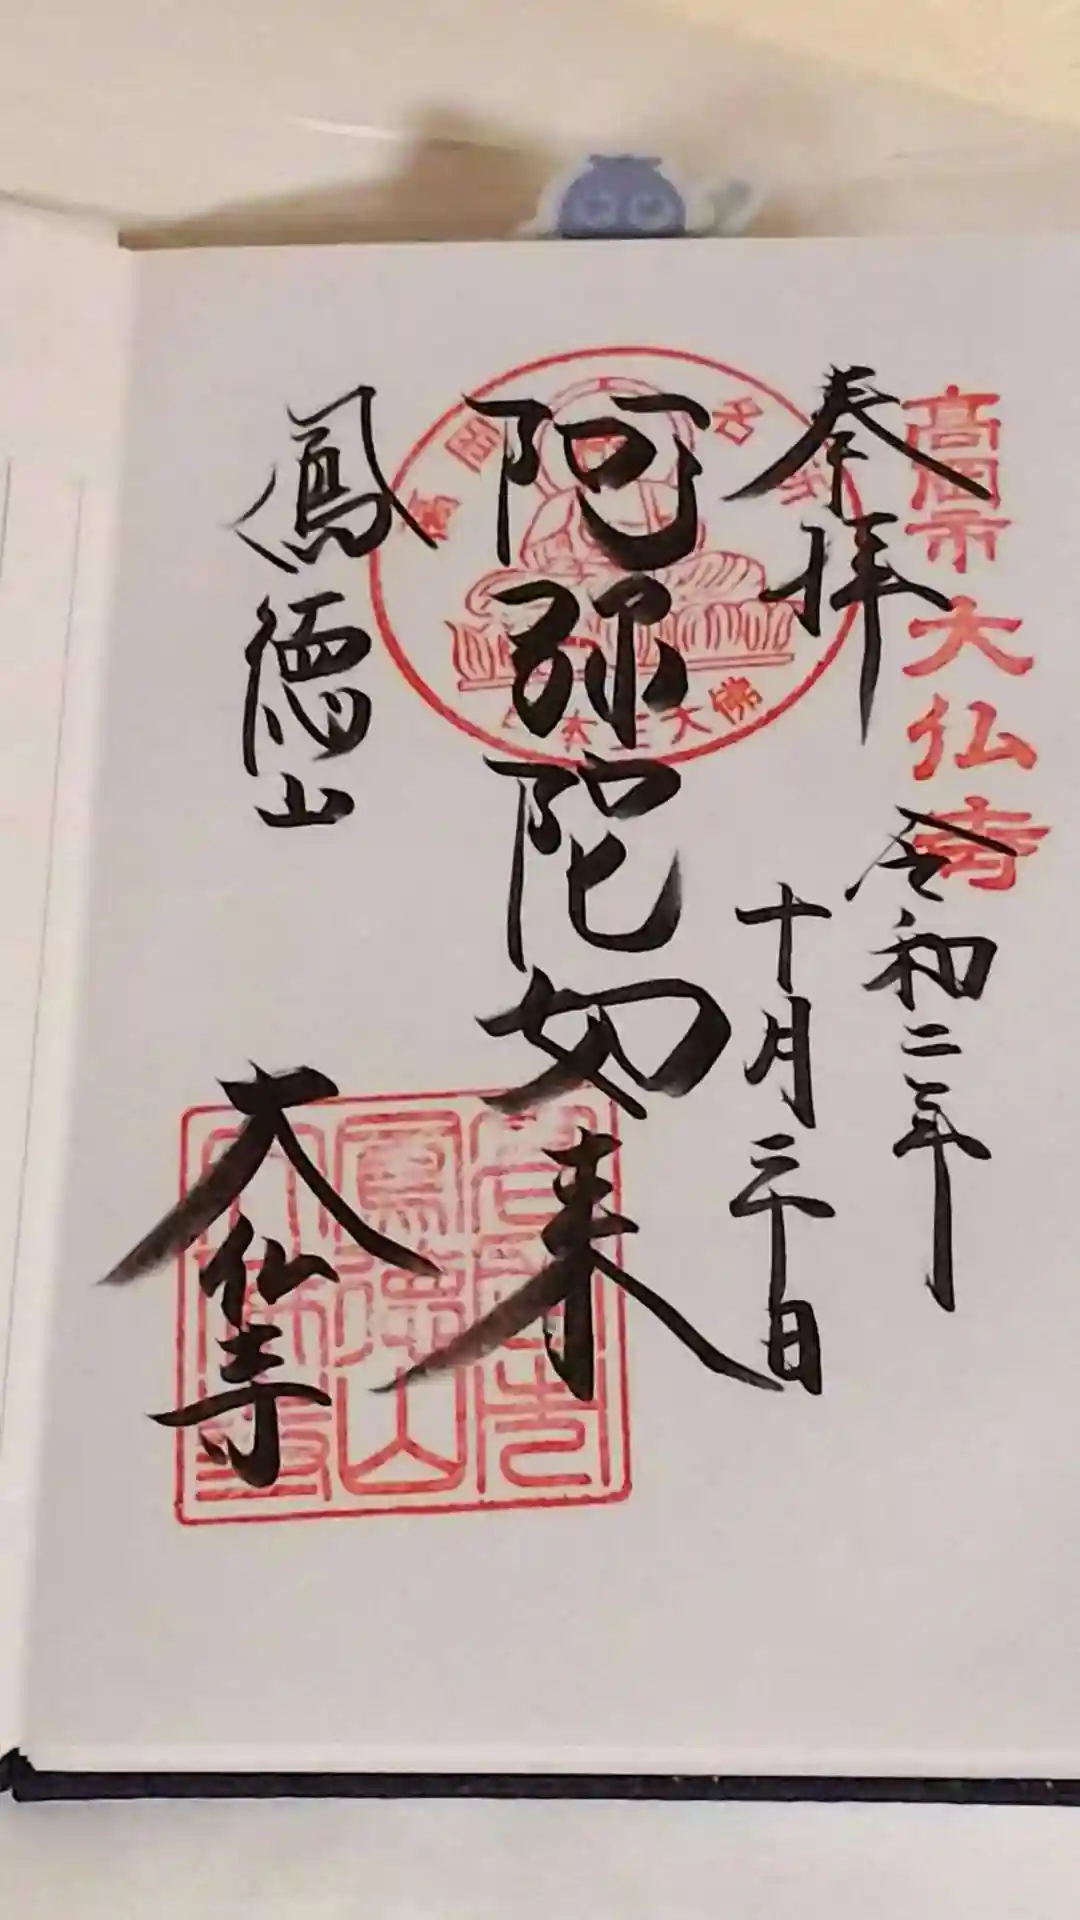 高岡市大仏寺
奉拝
令和二年
十月三十日
高岡名
日本三大佛
阿弥陀如来
鳳徳山
大仏寺
鳳徳山